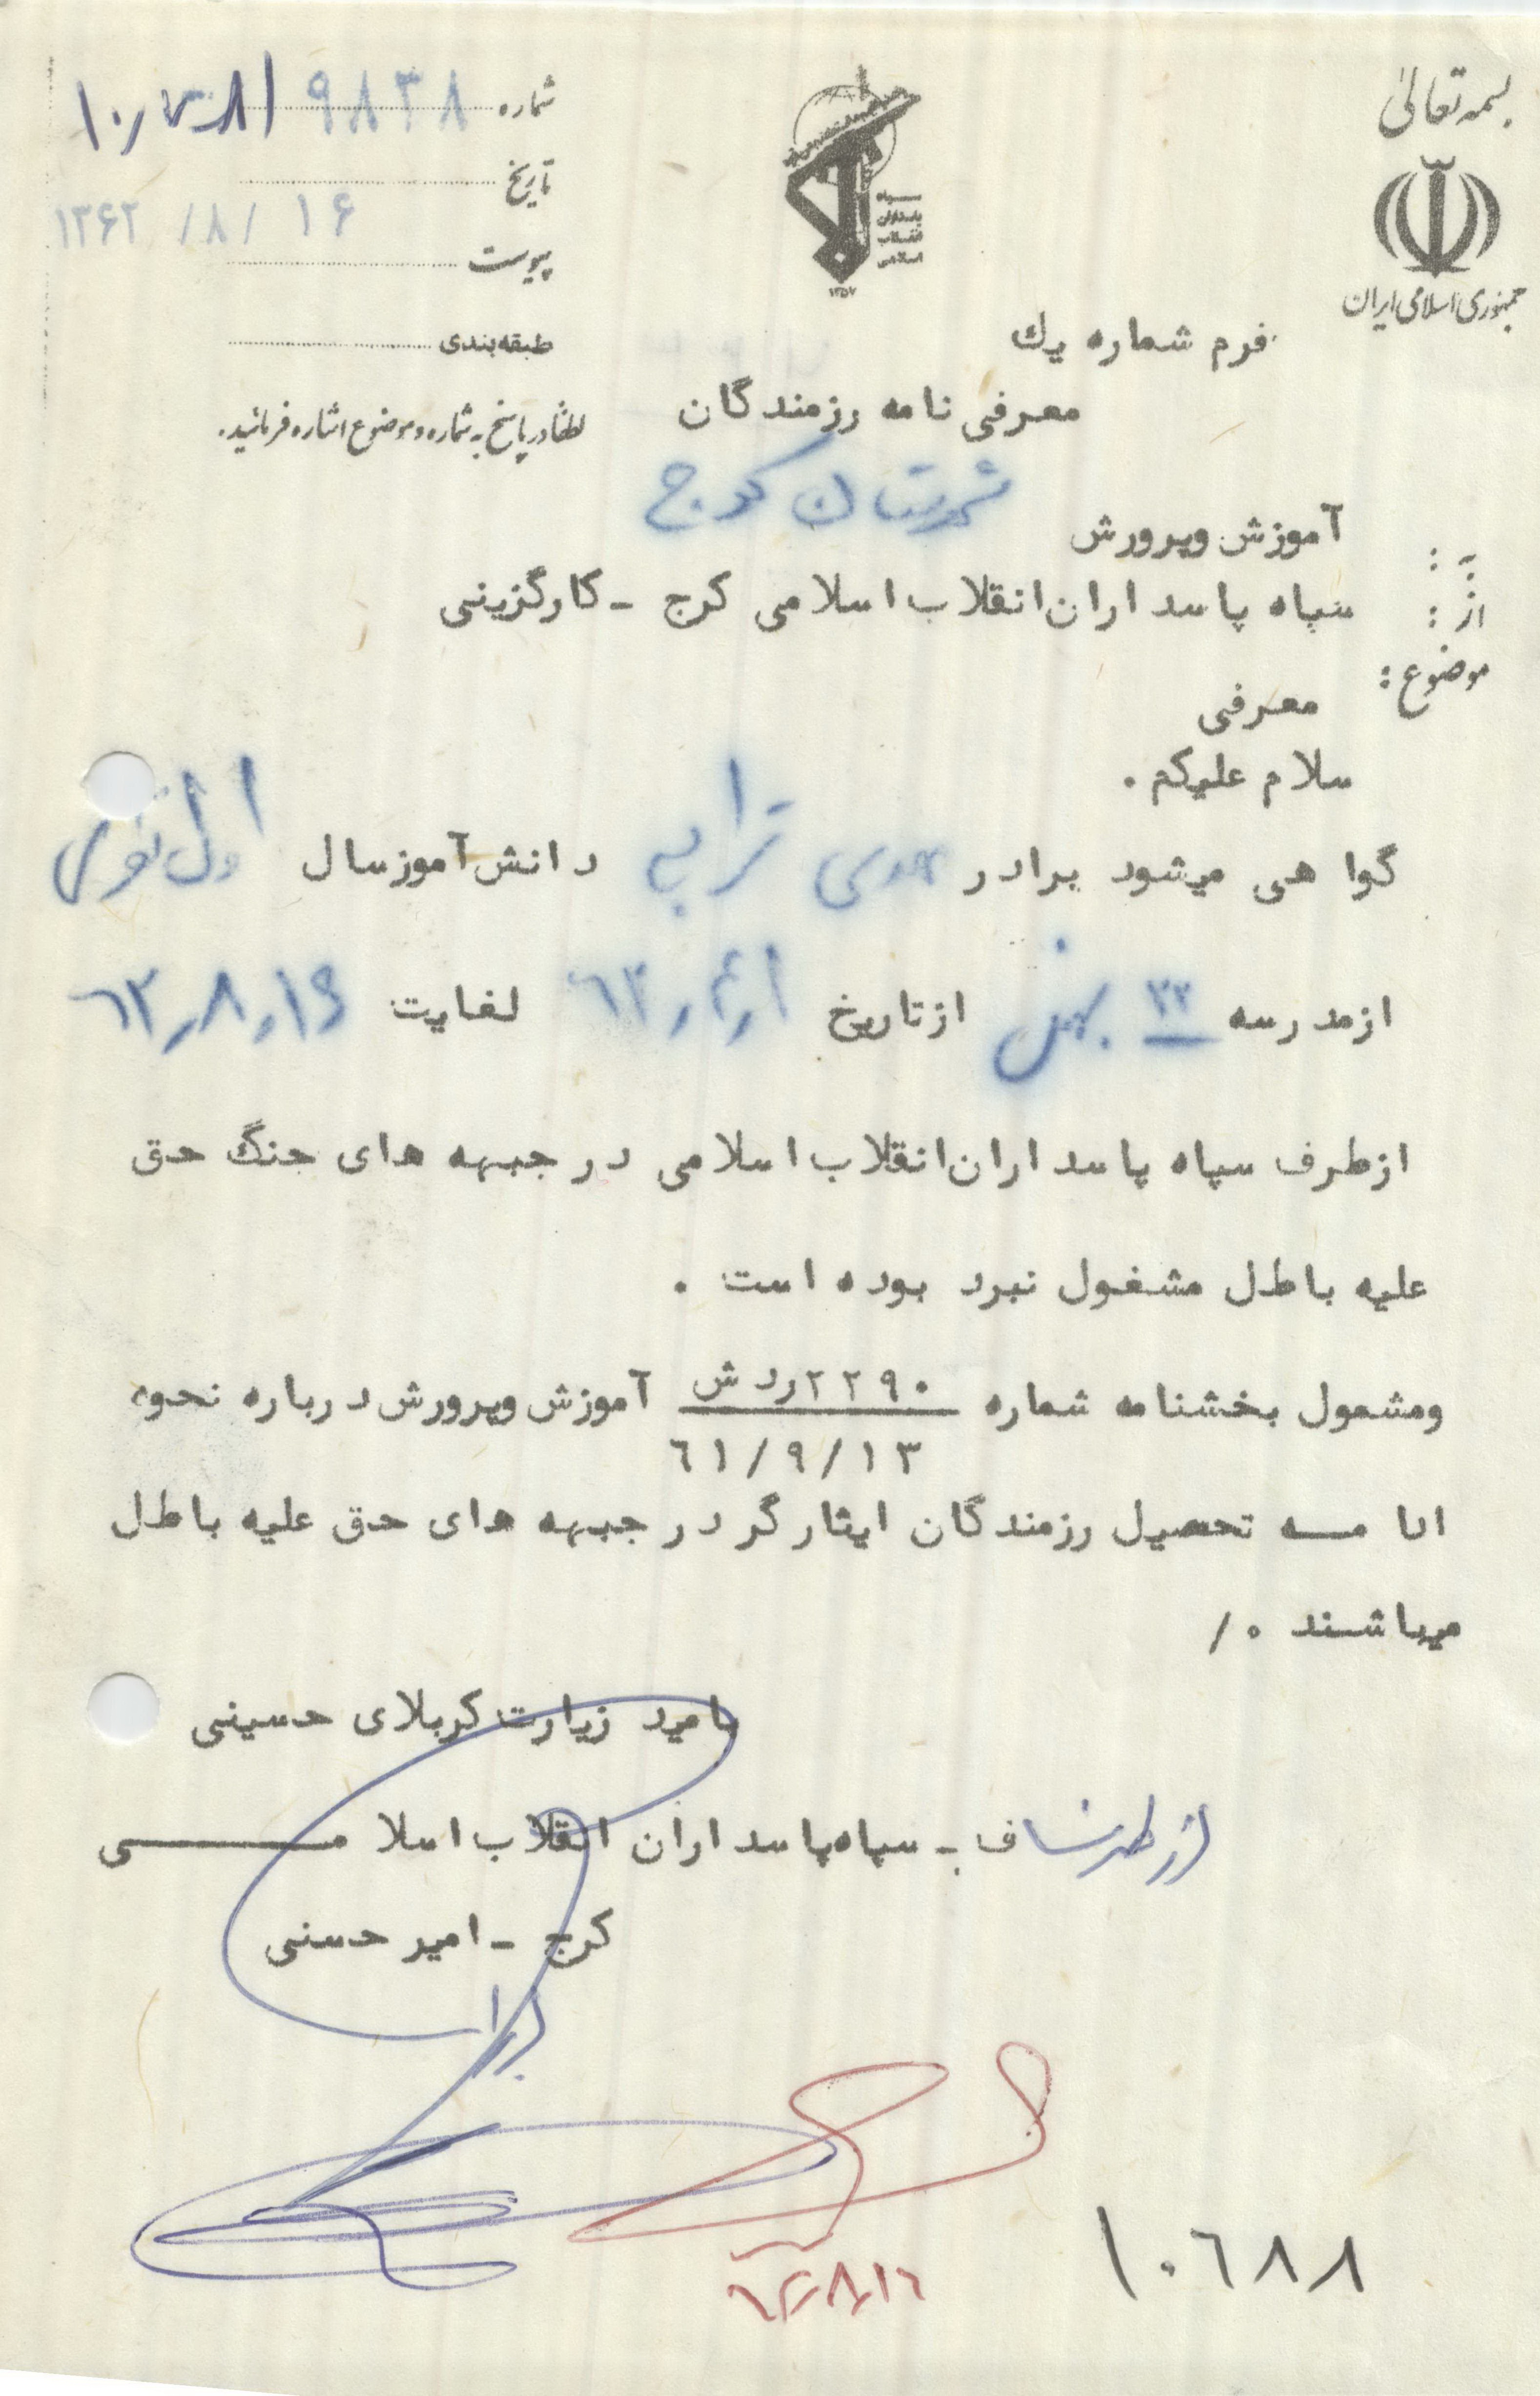 بسمه تعالی
جمهوری اسلامی ایران
سپاه
پاسداران
انقلاب
اسلامی
۱۳۵۷
شماره ۹۸۳۸
تاریخ ۱۳۶۲ / ۸ / ۱۶
پیوست
طبقه‌بندی
لطفاً در پاسخ به شماره و موضوع اشاره فرمائید.
فرم شماره یک
معرفی نامه رزمندگان
به : آموزش وپرورش شهرستان کرج
از : سپاه پاسداران انقلاب اسلامی کرج - کارگزینی
موضوع : معرفی
سلام علیکم .
گواهی میشود برادر مهدی ترابی دانش آموز سال اول
ازمدرسه ۲۲ بهمن ازتاریخ لغایت
ازطرف سپاه پاسداران انقلاب اسلامی در جبهه های جنگ حق
علیه باطل مشغول نبرد بوده است .
ومشمول بخشنامه شماره ۲۲۹۰رد ش آموزش وپرورش درباره نحوه
۶۱/۹/۱۳
ادامه تحصیل رزمندگان ایثارگر در جبهه های حق علیه باطل
میباشند ./
بامید زیارت کربلای حسینی
از طرف - سپاه پاسداران انقلاب اسلامی
کرج - امیر حسنی
۶۲/۸/۱۶
۱۰۶۸۸